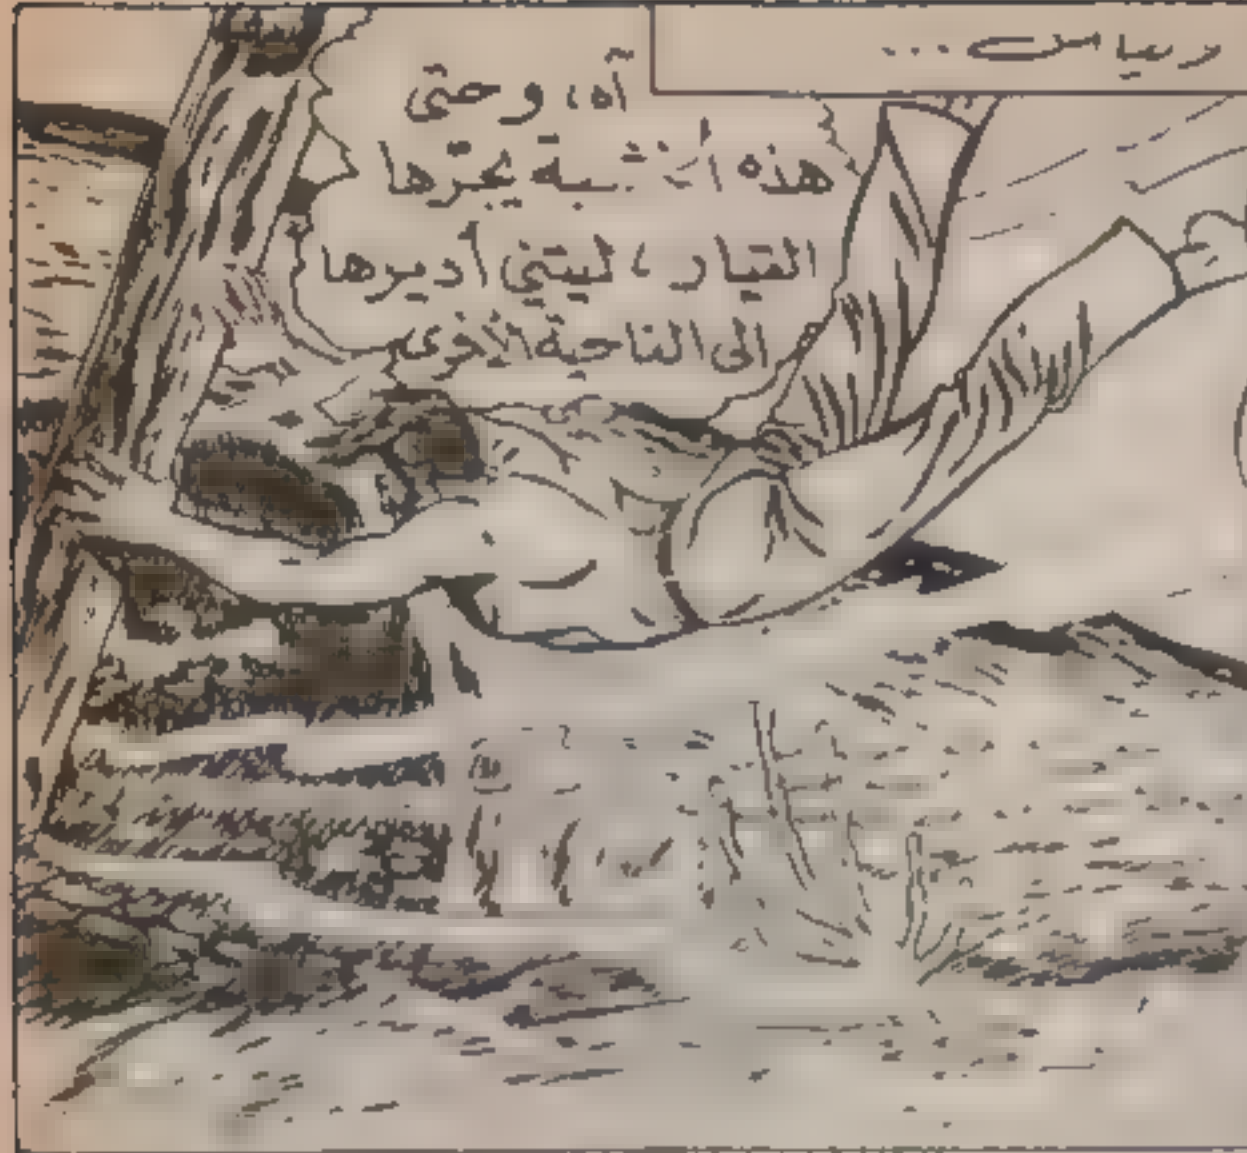 وبيأس...
آه، وحتى
هذه الخشبة يجرّها
التيار، ليتني أديرها
الى الناحية الأخرى